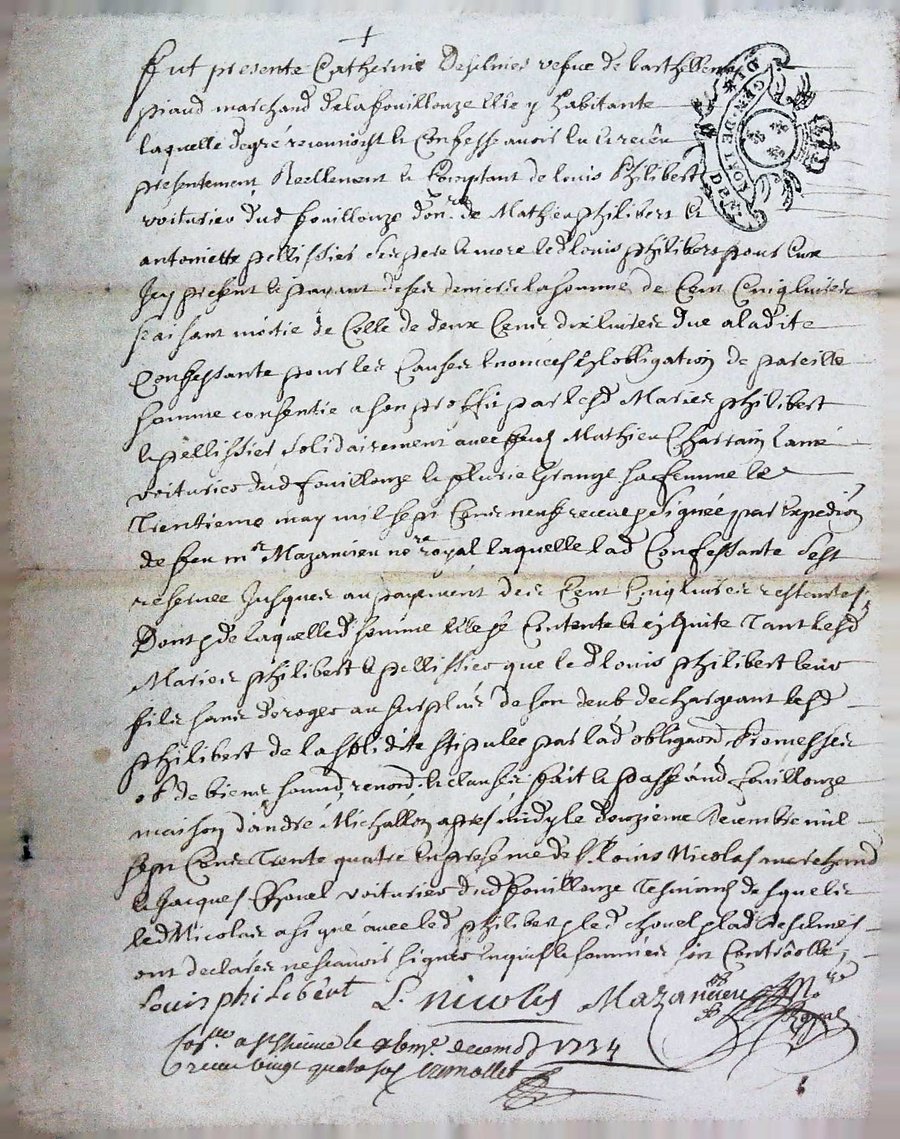 fut presente Catherine Deschmes vefue de barthellemy
piaud marchand de la fouillouze elle y habitante
laquelle de gré reconnoist & Confesse avoir eu & receu
presentement Reellement & Comptant de louis Philibert
voiturier dud fouillouze don.re de Mathieu philibert &
antoinette pellissier ses pere & mere led louis philibert pour eux
Icy present & payant de ses deniers la somme de Cent Cinq livres
faisant moitié de Celle de deux Cens dix livres due a ladite
Confessante pour les Causes enoncees es obligation de pareille
somme consentie a son proffit par lesd Mariés philibert
& pellissier solidairement avec feu Mathieu Chastain lainé
voiturier dud fouillouze & plurie Grange sa femme le
Trentieme may mil sept Cens neuf receue & signée par Expedion
de feu me Mazanieu nore royal laquelle lad Confessante sest
reservee Jusques au payement des Cent Cinq livres restentes
Dont & de laquelle d somme elle se Contente & en quite Tant lesd
Mariés philibert & pellissier que led louis philibert leur
fils sans deroger au surplus de son deub dechargeant lesd
philibert de la solidité stipulee par lad obligaon Promesses
ob de biens soumd renond & clauses fait & passé aud fouillouze
maison dandré Michallon apres midy le douzieme decembre mil
sept Cens Trente quatre En presence de Sr louis Nicolas marchand
& Jacques Chovel voiturier dud fouillouze Tesmoins desquels
led Nicolas a signé avec led philibert & led chovel & lad deschmes
ont declarés ne scavoir signer enquis & sommés soit Controollé
Louis philibert L. nicolas Mazanieu No.re Royal
Con.lle a st Etienne le decemb 1734
receu vingt quatre sols
GEN. DE LYON